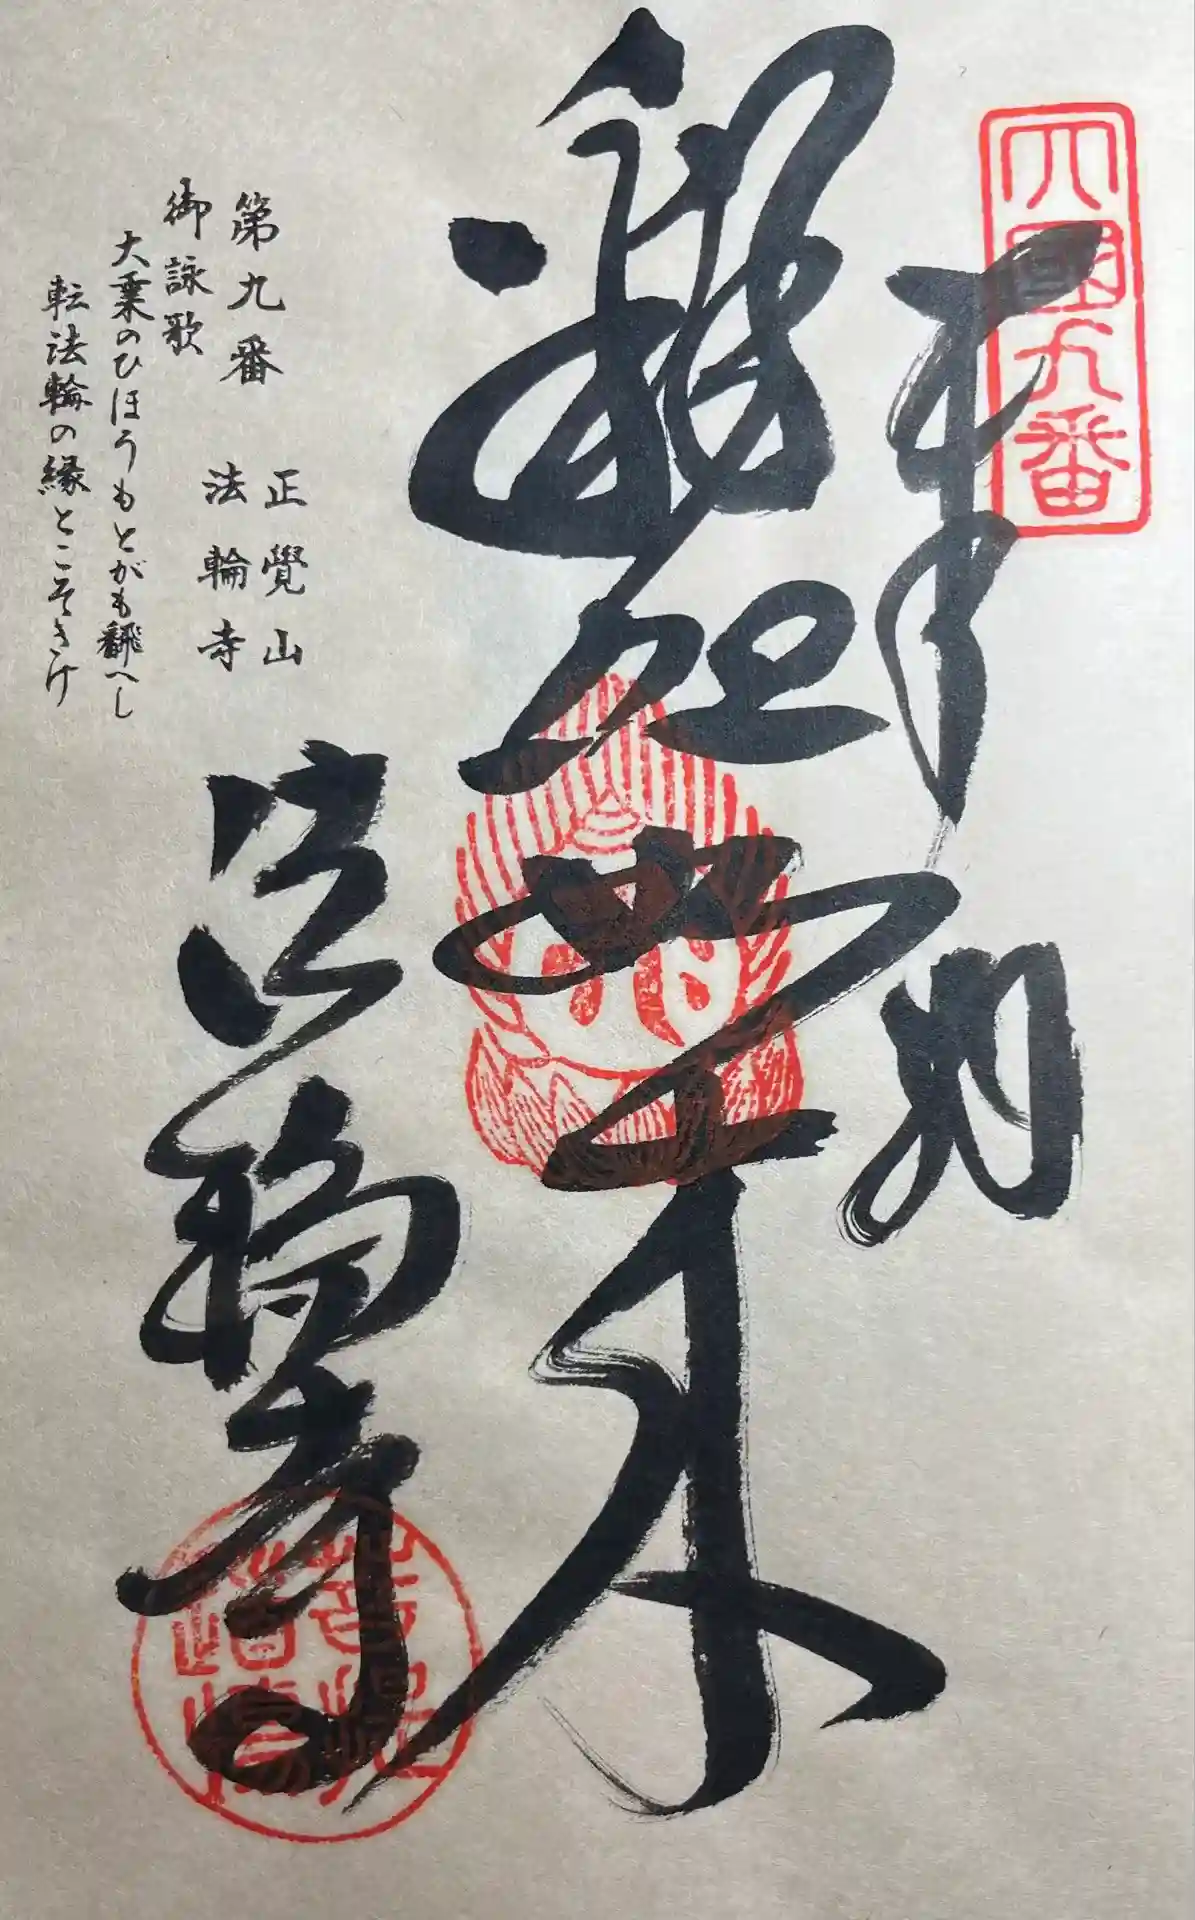 四國九番
奉拝
釈迦如来
法輪寺
第九番 正覺山
法輪寺
御詠歌
大乗のひほうもとがも飜へし
転法輪の縁とこそきけ